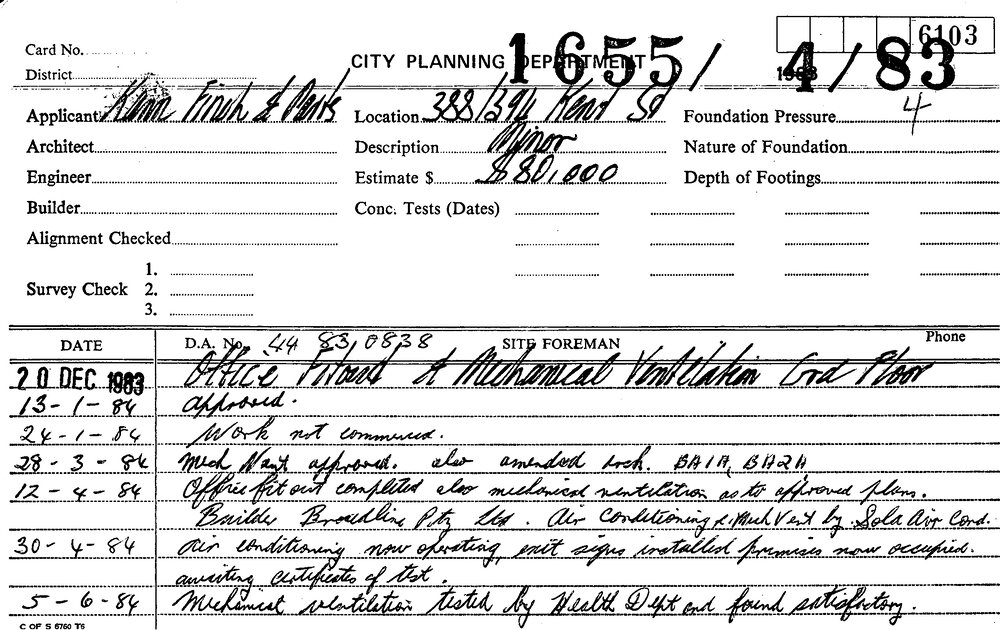 6103
Card No.
CITY PLANNING DEPARTMENT 1655/ 4/83
District
Applicant Finch & Location 388/394 Kent St Foundation Pressure 4
Architect Description Minor Nature of Foundation
Engineer Estimate $ $80,000 Depth of Footings
Builder Conc. Tests (Dates)
Alignment Checked
1.
Survey Check 2.
3.
DATE D.A. No. 44 83 0838 SITE FOREMAN Phone
20 DEC 1983 Office Fitout & Mechanical Ventilation Grd Floor
13-1-84 approved.
24-1-84 Work not commenced.
28-3-84 Mech Vent approved. also amended arch. BA1A, BA2A
12-4-84 Office fit out completed also mechanical ventilation as to approved plans.
Builder Broadline Pty Ltd. Air Conditioning & Mech Vent by Air Cond.
30-4-84 Air conditioning now operating, exit signs installed premises now occupied.
awaiting certificates of test.
5-6-84 Mechanical ventilation tested by Health Dept and found satisfactory.
C OF S 6760 T6